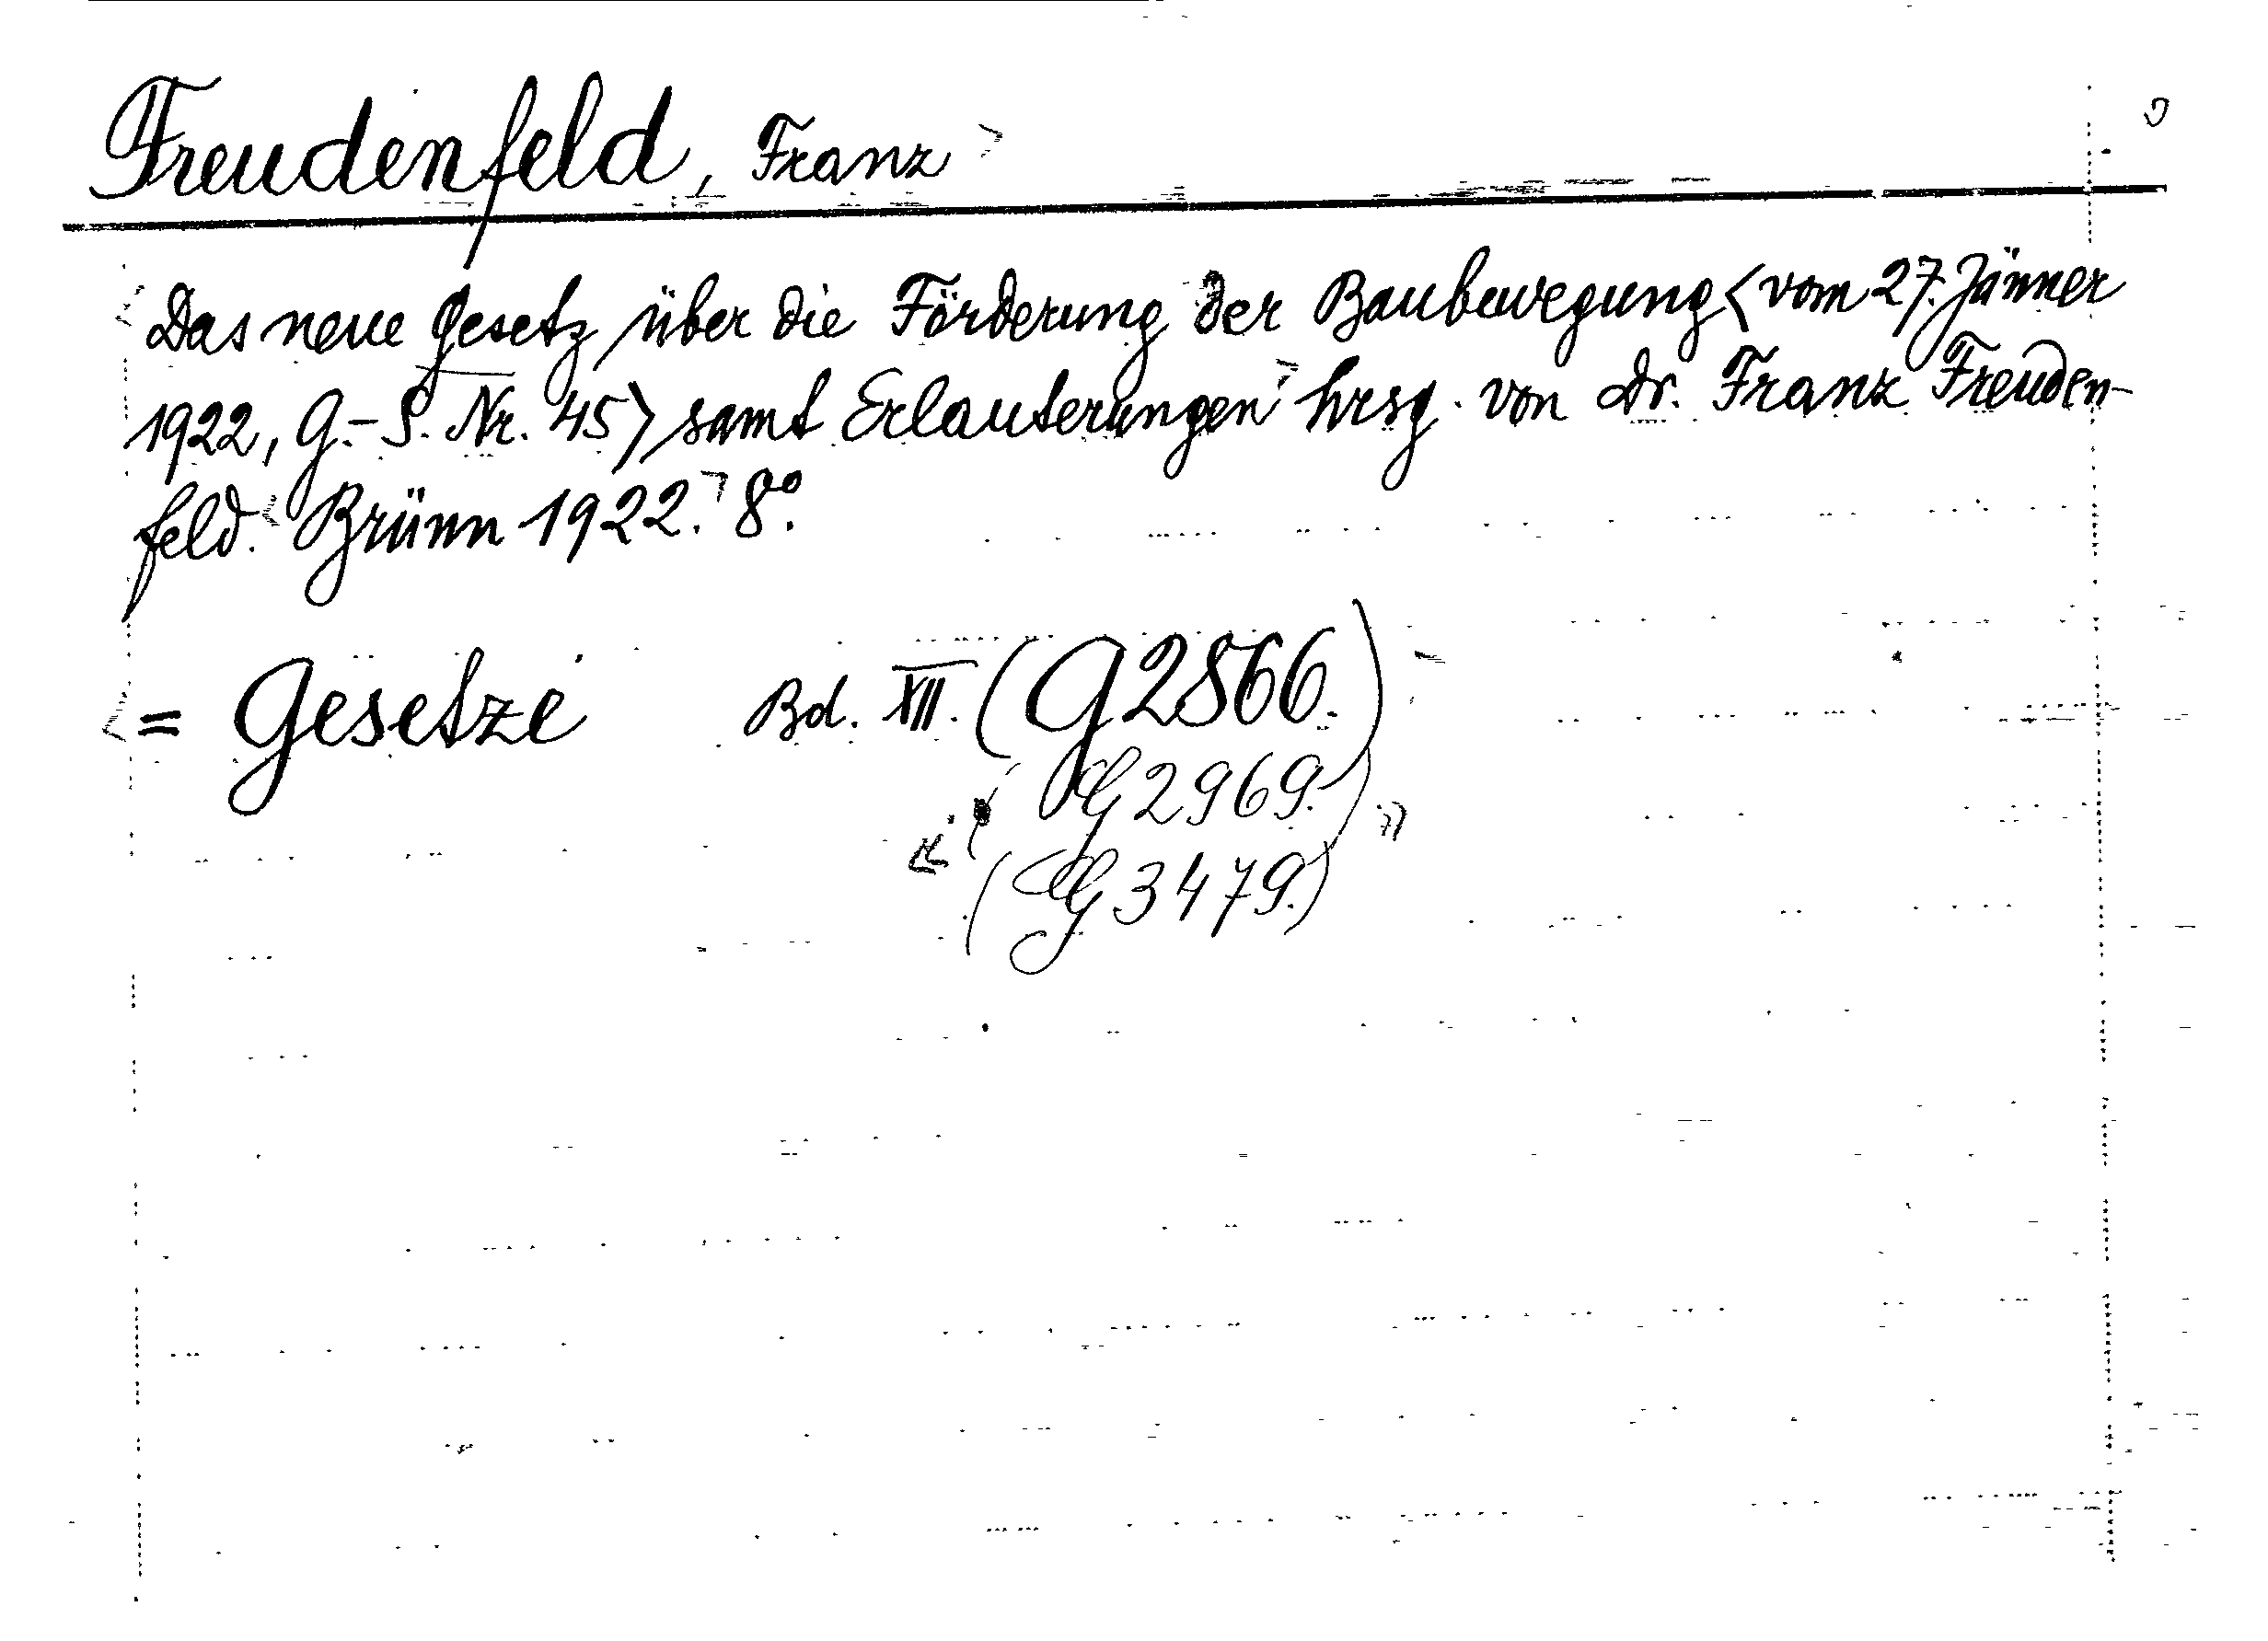 Freudenfeld, Franz
Das neue Gesetz über die Förderung der Baubewegung <vom 27. Jänner
1922, G.-S. Nr. 45> samt Erlauterungen hrsg. von Dr. Franz Freuden-
feld. Brünn 1922. 8°.
= Gesetze Bd. XII. (G 2866.)
(G 2969.)
(G 3479.)